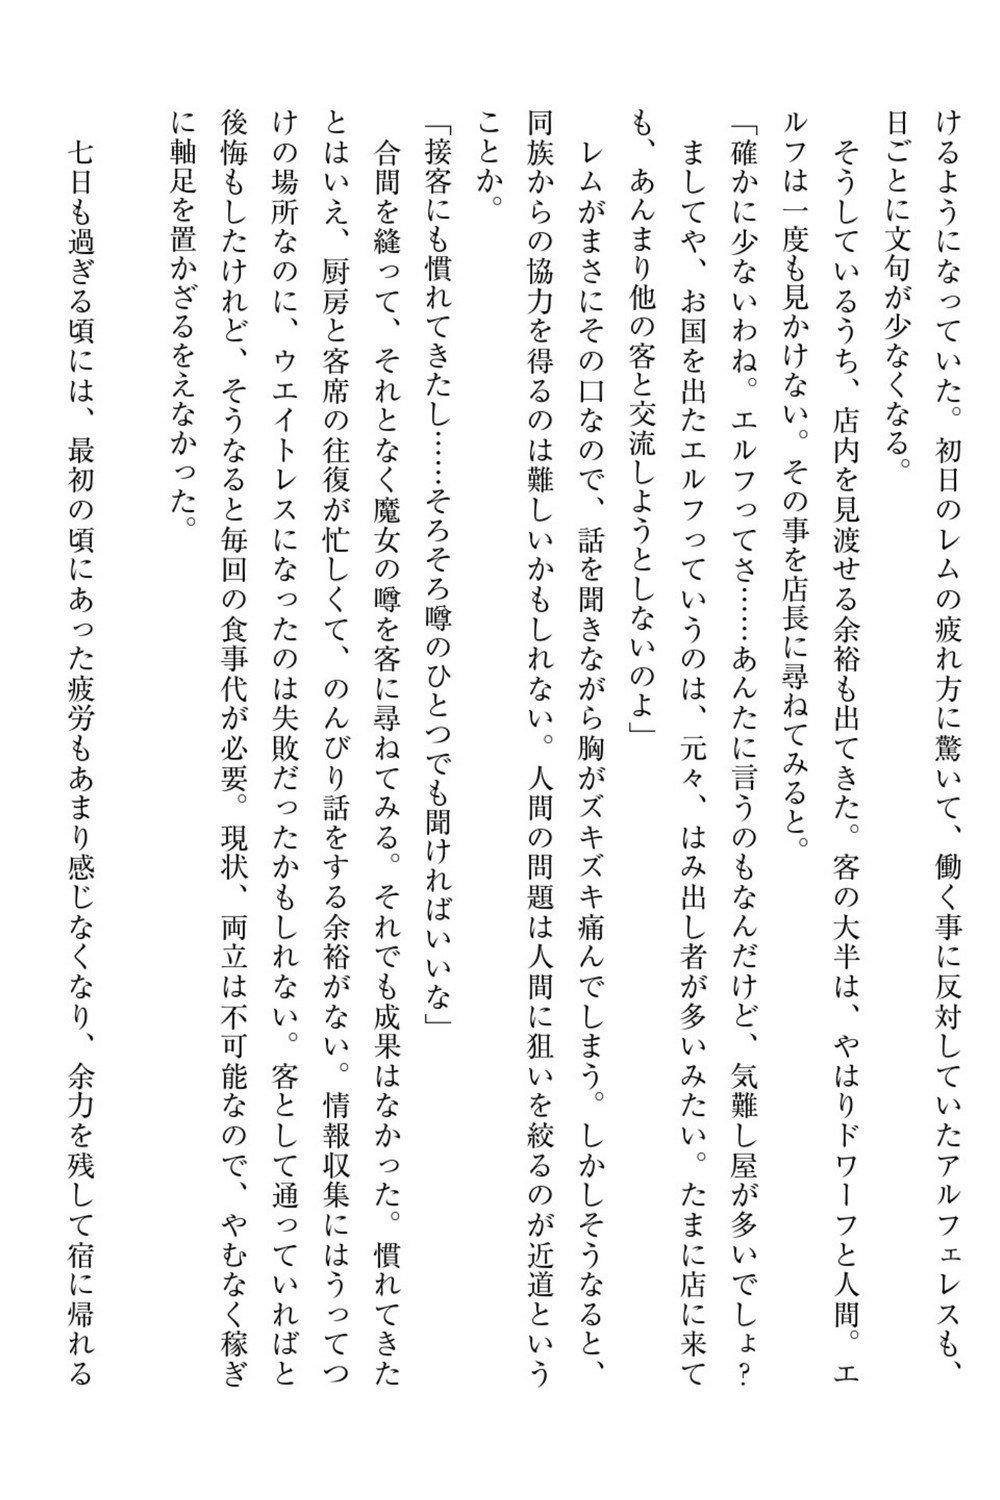 けるようになっていた。初日のレムの疲れ方に驚いて、働く事に反対していたアルフェレスも、
日ごとに文句が少なくなる。
そうしているうち、店内を見渡せる余裕も出てきた。客の大半は、やはりドワーフと人間。エ
ルフは一度も見かけない。その事を店長に尋ねてみると。
「確かに少ないわね。エルフってさ……あんたに言うのもなんだけど、気難し屋が多いでしょ？
ましてや、お国を出たエルフっていうのは、元々、はみ出し者が多いみたい。たまに店に来て
も、あんまり他の客と交流しようとしないのよ」
レムがまさにその口なので、話を聞きながら胸がズキズキ痛んでしまう。しかしそうなると、
同族からの協力を得るのは難しいかもしれない。人間の問題は人間に狙いを絞るのが近道という
ことか。
「接客にも慣れてきたし……そろそろ噂のひとつでも聞ければいいな」
合間を縫って、それとなく魔女の噂を客に尋ねてみる。それでも成果はなかった。慣れてきた
とはいえ、厨房と客席の往復が忙しくて、のんびり話をする余裕がない。情報収集にはうってつ
けの場所なのに、ウエイトレスになったのは失敗だったかもしれない。客として通っていればと
後悔もしたけれど、そうなると毎回の食事代が必要。現状、両立は不可能なので、やむなく稼ぎ
に軸足を置かざるをえなかった。
七日も過ぎる頃には、最初の頃にあった疲労もあまり感じなくなり、余力を残して宿に帰れる